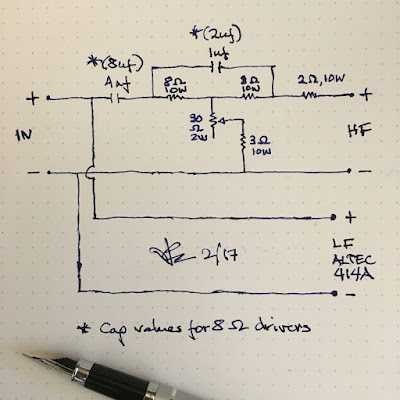 *(2uf)
1uf
*(8uf)
4uf
8Ω
10W
8Ω
10W
2Ω, 10W
+
+
30
Ω
2W
3Ω
10W
IN
HF
-
-
+
LF
ALTEC
414A
-
2/17
* Cap values for 8Ω drivers